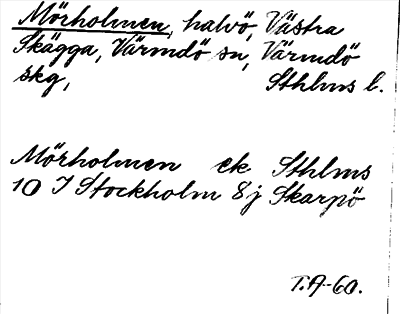 Mörholmen, halvö, Västra
Skägga, Värmdö sn, Värmdö
skg, Sthlms l.
Mörholmen ek Sthlms
10 I Stockholm 8 j Skarpö
T.A-60.